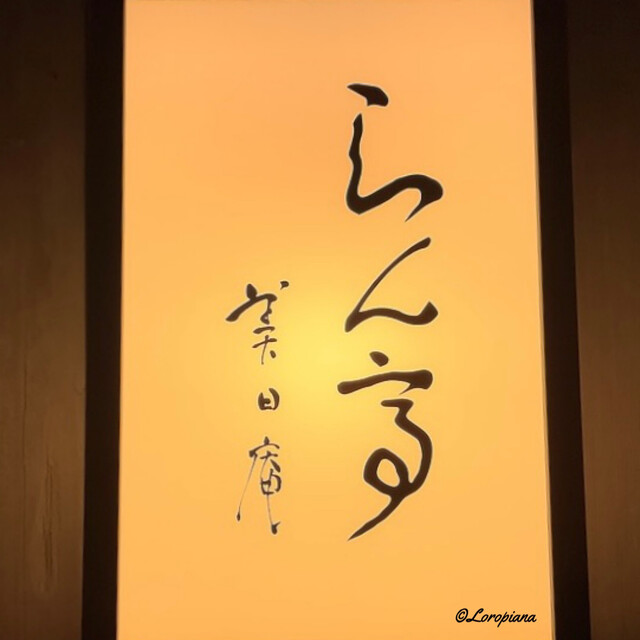 らん亭
美日庵
©Loropiana